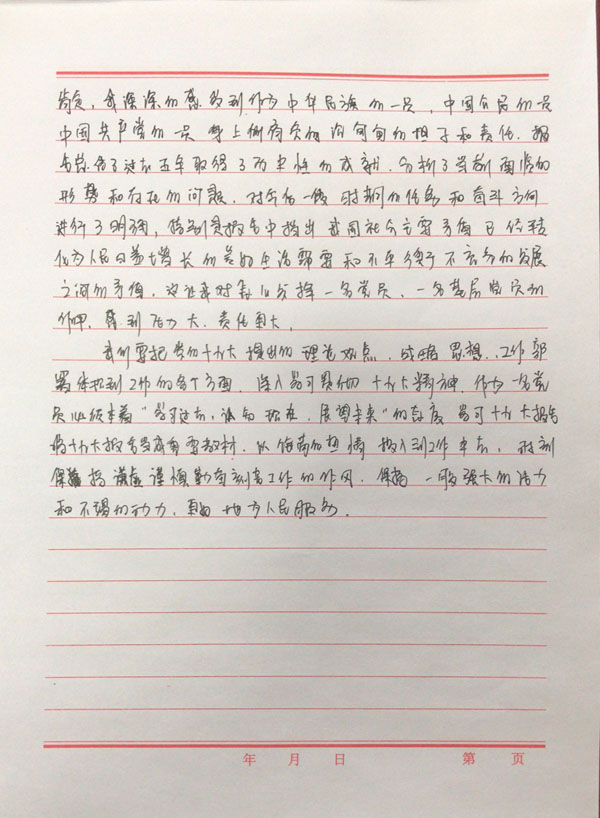 肯定，我深深的感到作为中华民族的一员，中国公民的一员
中国共产党的一员身上倾有负的沉甸甸的担子和责任。报
告总结了过去五年取得了历史性的成就，分析了当前面临的
形势和存在的问题，对今后一段时期的任务和奋斗方向
进行了明确，特别是报告中指出我国社会主要矛盾已经转
化为人民日益增长的美好生活需要和不平衡不充分的发展
之间的矛盾，这让我一名党员、一名基层党员的
作用，感到压力大、责任重大。
我们要把党的十九大提出的理论观点、战略思想、工作部
署体现到工作的各个方面，深入学习贯彻十九大精神，作为一名党
员必须本着“学习过去，认知现在，展望未来”的态度学习十九大报告
将十九大报告当成重要教材，以饱满的热情投入到工作中去，时刻
保持谦虚谨慎勤奋刻苦工作的作风，保持一股强大的活力
和不竭的动力，更好地为人民服务。
年 月 日 第 页